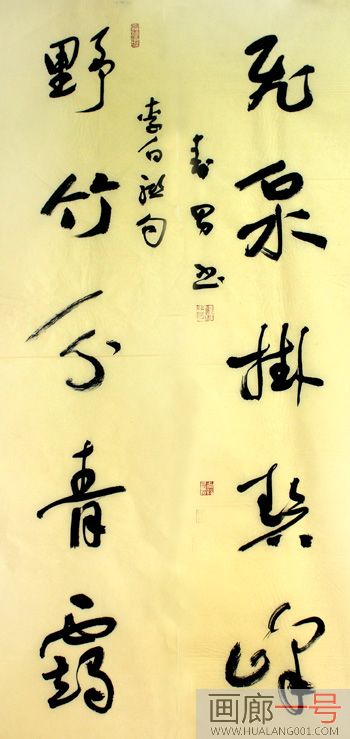 飛泉掛碧峰
野竹分青靄
李白聯句
書
画廊一号
WWW.HUALANG001.COM